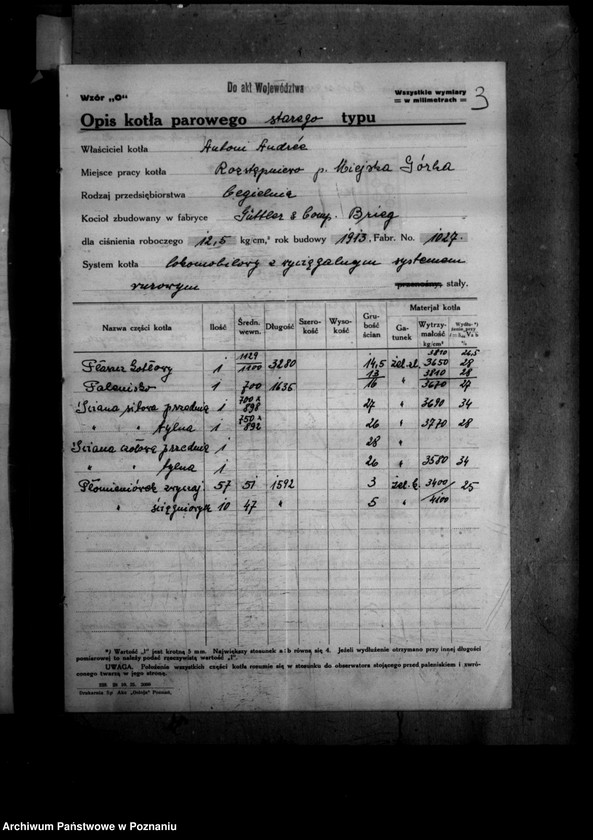 Do akt Województwa
Wzór „O"
Wszystkie wymiary
= w milimetrach =
3
Opis kotła parowego starego typu
Właściciel kotła Antoni Andrée
Miejsce pracy kotła Rozstępniewo p. Miejska Górka
Rodzaj przedsiębiorstwa Cegielnia
Kocioł zbudowany w fabryce Güttler & Comp. Brieg
dla ciśnienia roboczego 12,5 kg/cm,² rok budowy 1913, Fabr. No. 1027.
System kotła lokomobilowy z wyciągalnym systemem
rurowym przenośny, stały.
Materjał kotła
Nazwa części kotła Ilość Średn. wewn. Długość Szerokość Wysokość Grubość ścian Gatunek Wytrzymałość kg/cm²
1129 3810 26,5
Płaszcz Kotłowy 1 1100 3280 14,5 żel. zl. 3650 28
13 3810 28
Palenisko 1 700 1635 16 " 3670 27
Ściana sitowa przednia 1 700 x 898 27 " 3690 34
" " tylna 1 750 x 892 26 " 3770 28
Ściana czołowa przednia 1 28 "
" " tylna 1 26 " 3580 34
Płomieniówek 57 51 1592 3 3400 25
" 10 47 " 5 " 4100
*) Wartość „l" jest kretną 5 mm. Największy stosunek a : b równa się 4. Jeżeli wydłużenie otrzymano przy innej długości
pomiarowej to należy podać rzeczywistą wartość „l".
UWAGA. Położenie wszystkich części kotła rozumie się w stosunku do obserwatora stojącego przed paleniskiem i zwró-
conego twarzą w jego stronę.
Drukarnia Sp. Akc. „Ostoja" Poznań.
Archiwum Państwowe w Poznaniu